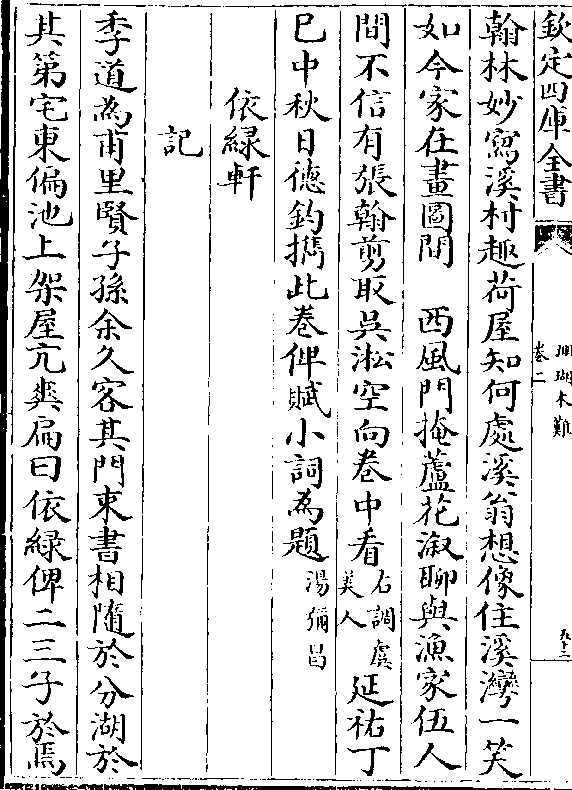 欽定四庫全書
珊瑚木難
卷二
五十三
翰林妙寫溪村趣荷屋知何處溪翁想像住溪灣一笑
如今家在畫圖間　西風門掩蘆花溆聊與漁家伍人
間不信有張翰剪取吳淞空向巻中看右調虞美人延祐丁
巳中秋日德鈞擕此卷俾賦小詞為題湯彌昌
依緑軒
記
季道為甫里賢子孫余久客其門束書相隨於分湖於
其第宅東偏池上架屋亢爽扁曰依緑俾二三子於焉